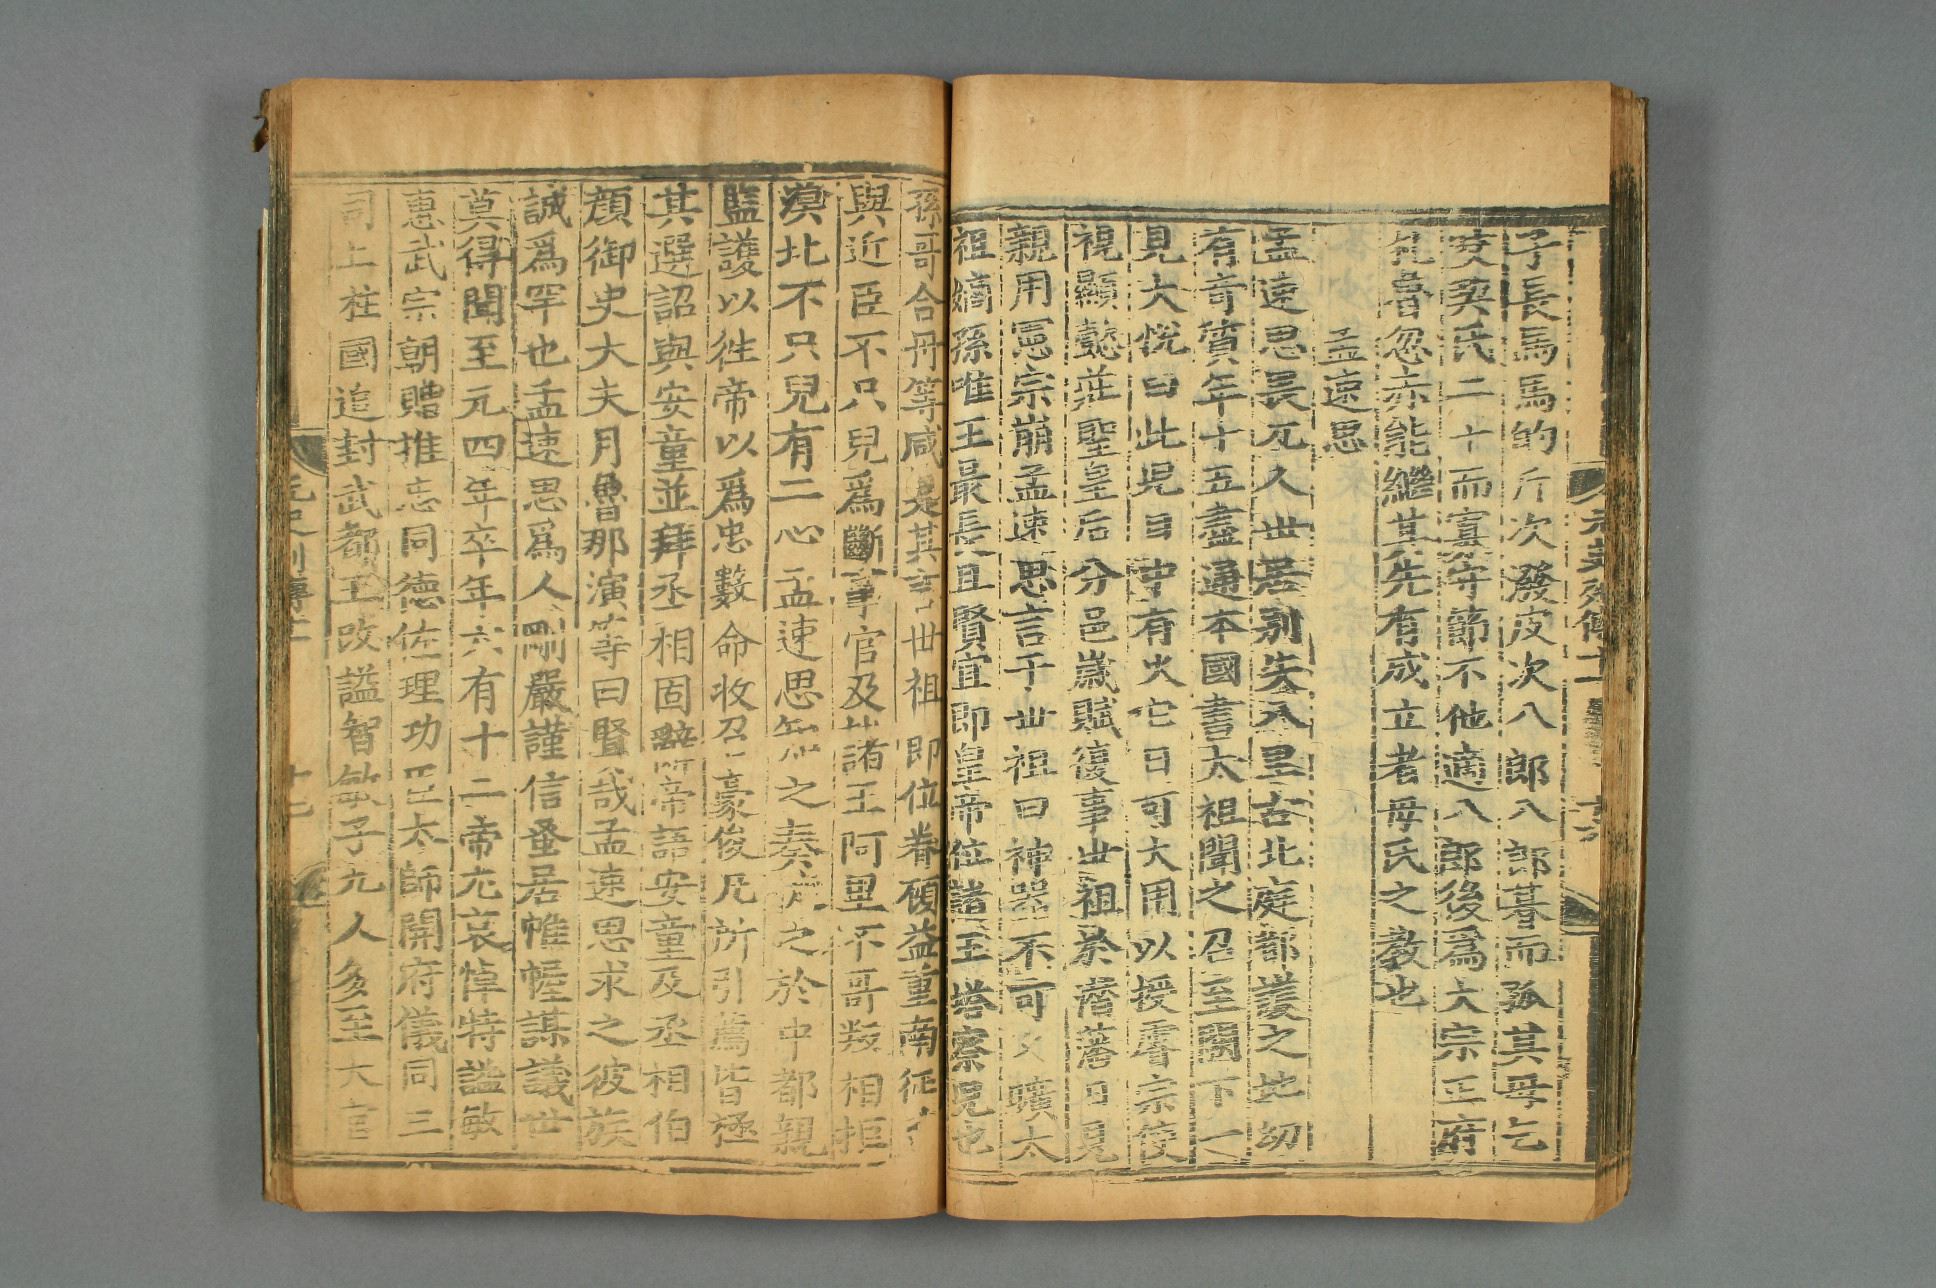 子長馬馬的斤次潑皮次八郎八郎暮而孤其母乞
咬契氏二十而寡守節不他適八郎後爲大宗正府
札魯忽赤能繼其先有成立者母氏之教也
孟速思
孟速思畏兀人世居別失八里古北庭都護之地幼
有奇質年十五盡通本國書太祖聞之召至闕下一
見大悅曰此兒目中有火它日可大用以授睿宗使
視顯懿莊聖皇后分邑歲賦復事世祖於潛藩日見
親用憲宗崩孟速思言于世祖曰神器不可久曠太
祖嫡孫唯王最長且賢宜即皇帝位諸王塔察兒也
孫哥合丹等咸是其言世祖即位眷顧益重南征
與近臣不只兒爲斷事官及諸王阿里不哥叛相拒
漠北不只兒有二心孟速思知之奏徙之於中都親
監護以往帝以爲忠數命收召豪俊凡所引薦皆極
其選詔與安童並拜丞相固辭帝語安童及丞相伯
顏御史大夫月魯那演等曰賢哉孟速思求之彼族
誠爲罕也孟速思爲人剛嚴謹信蚤居帷幄謀議世
莫得聞至元四年卒年六有十二帝尤哀悼特謚敏
惠武宗朝贈推忠同德佐理功臣太師開府儀同三
司上柱國追封武都王改謚智敏子九人多至大官
元史列傳十一
十七